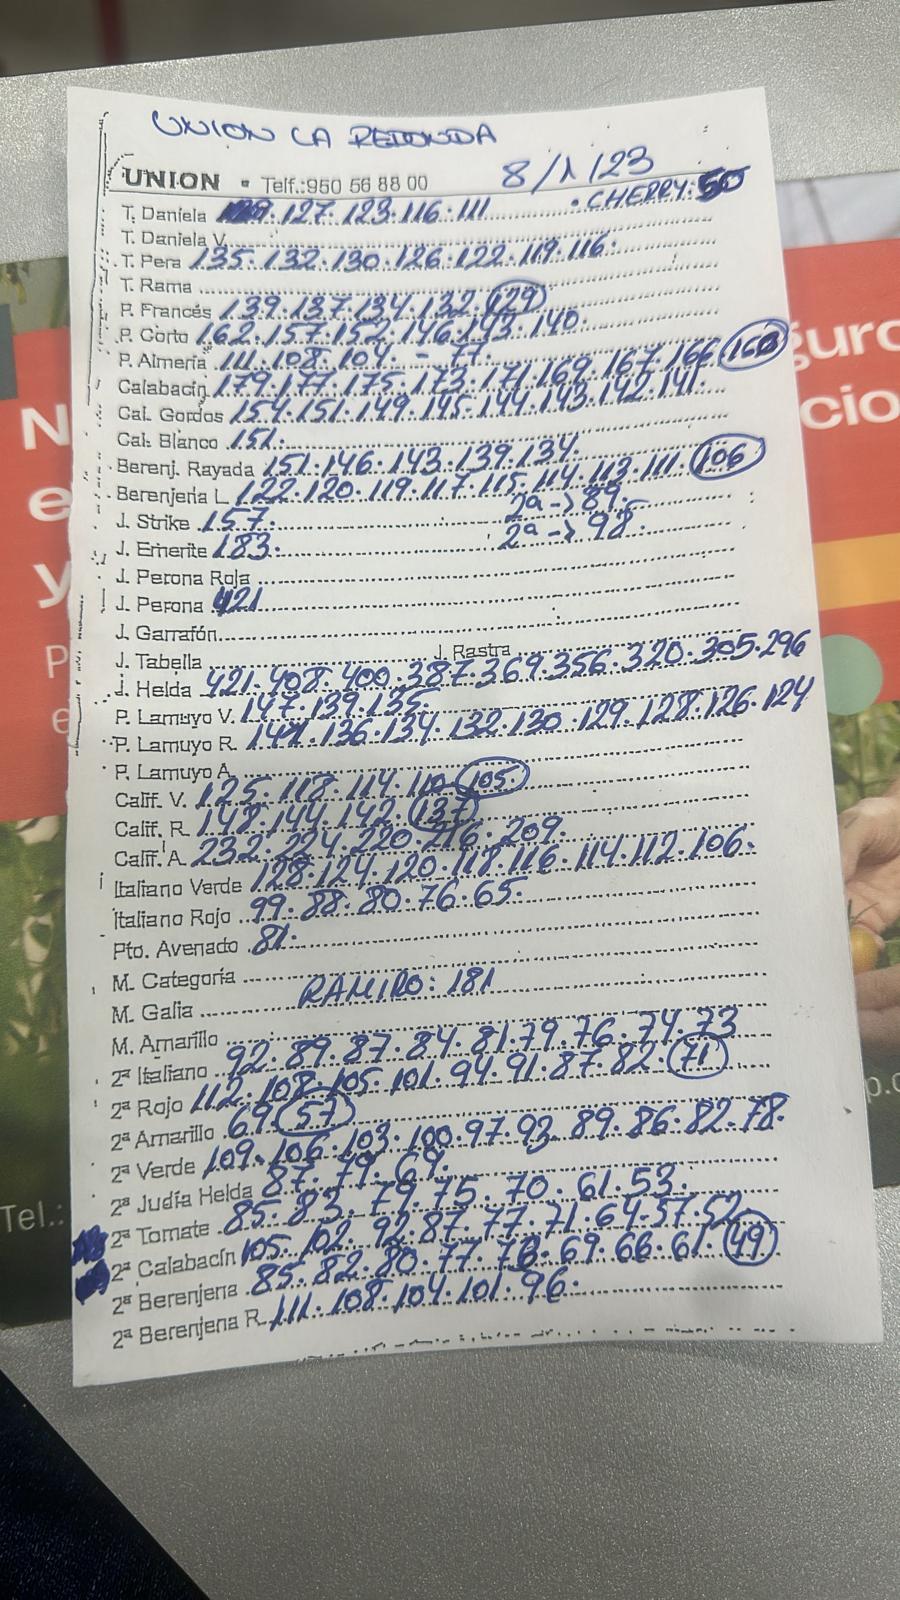 UNION LA REDONDA
UNION • Telf.: 950 56 88 00 8/1/23
T. Daniela 127. 123. 116. 111 • CHERRY: 50
T. Daniela V.
T. Pera 135. 132. 130. 126. 122. 119. 116.
T. Rama
P. Francés 139. 137. 134. 132. 129
P. Corto 162. 157. 152. 146. 143. 140.
P. Almería 111. 108. 104. - 77.
Calabacín 179. 177. 175. 173. 171. 169. 167. 166
Cal. Gordos 154. 151. 149. 145. 144. 143. 142. 141.
Cal. Blanco 151.
Berenj. Rayada 151. 146. 143. 139. 134.
Berenjena L. 122. 120. 119. 117. 115. 114. 113. 111. 106
J. Strike 157. 2ª -> 89.
J. Emerite 183. 2ª -> 98.
J. Perona Roja
J. Perona 421
J. Garrafón
J. Tabella J. Rastra
J. Helda 421. 408. 400. 387. 369. 356. 320. 305. 296
P. Lamuyo V. 147. 139. 135.
P. Lamuyo R. 136. 134. 132. 130. 129. 128. 126. 124
P. Lamuyo A.
Calif. V. 125. 118. 114. 110 105.
Calif. R. 148. 144. 142. 137
Calif. A. 232. 224. 220. 216. 209.
Italiano Verde 128. 124. 120. 118. 116. 114. 112. 106.
Italiano Rojo 99. 88. 80. 76. 65.
Pto. Avenado 81.
M. Categoría
M. Galia RAMIRO: 181
M. Amarillo
2ª Italiano 92. 89. 87. 84. 81. 79. 76. 74. 73
2ª Rojo 112. 108. 105. 101. 94. 91. 87. 82 71
2ª Amarillo 69. 57
2ª Verde 109. 106. 103. 100. 97. 93. 89. 86. 82. 78.
2ª Judía Helda 87. 79. 69.
2ª Tomate 85. 83. 79. 75. 70. 61. 53.
2ª Calabacín 105. 102. 92. 87. 77. 71. 64. 57. 52.
2ª Berenjena 85. 82. 80. 77. 69. 66. 61. 49
2ª Berenjena R. 111. 108. 104. 101. 96.
Tel.: